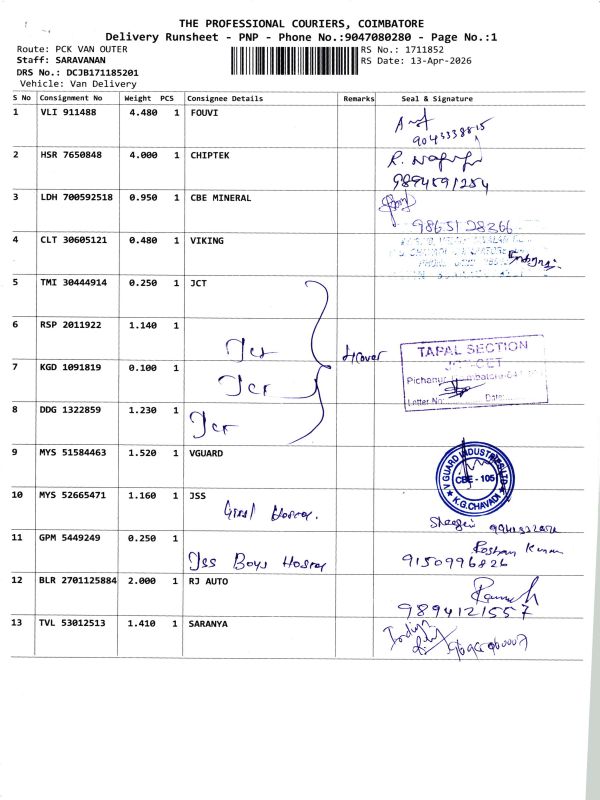 THE PROFESSIONAL COURIERS, COIMBATORE
Delivery Runsheet - PNP - Phone No.:9047080280 - Page No.:1
Route: PCK VAN OUTER RS No.: 1711852
Staff: SARAVANAN RS Date: 13-Apr-2026
DRS No.: DCJB171185201
Vehicle: Van Delivery
S No Consignment No Weight PCS Consignee Details Remarks Seal & Signature
1 VLI 911488 4.480 1 FOUVI
9043338815
2 HSR 7650848 4.000 1 CHIPTEK
9894591254
3 LDH 700592518 0.950 1 CBE MINERAL
9865128266
4 CLT 30605121 0.480 1 VIKING
5 TMI 30444914 0.250 1 JCT
6 RSP 2011922 1.140 1
Jct
TAPAL SECTION
7 KGD 1091819 0.100 1
Jct
Letter No: Date:
8 DDG 1322859 1.230 1
Jct
9 MYS 51584463 1.520 1 VGUARD
V GUARD INDUSTRIES LTD
CBE - 105
K.G.CHAVADI
10 MYS 52665471 1.160 1 JSS
11 GPM 5449249 0.250 1
Jss Boys Hostel
9150996826
12 BLR 2701125884 2.000 1 RJ AUTO
9894121557
13 TVL 53012513 1.410 1 SARANYA